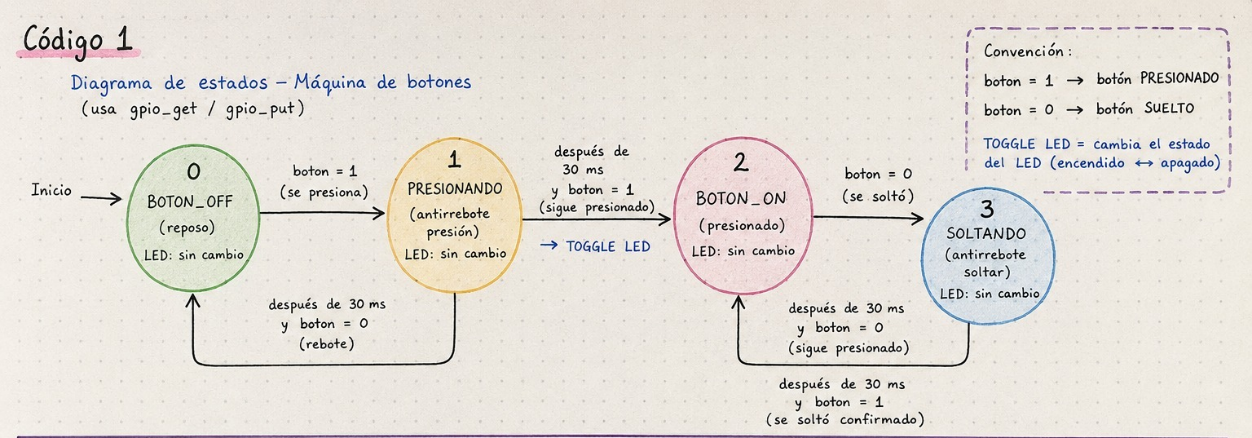 Código 1
Diagrama de estados – Máquina de botones
(usa gpio_get / gpio_put)
Convención:
boton = 1 → botón PRESIONADO
boton = 0 → botón SUELTO
TOGGLE LED = cambia el estado
del LED (encendido ↔ apagado)
Inicio
0
BOTON_OFF
(reposo)
LED: sin cambio
boton = 1
(se presiona)
1
PRESIONANDO
(antirrebote
presión)
LED: sin cambio
después de
30 ms
y boton = 1
(sigue presionado)
→ TOGGLE LED
2
BOTON_ON
(presionado)
LED: sin cambio
boton = 0
(se soltó)
3
SOLTANDO
(antirrebote
soltar)
LED: sin cambio
después de 30 ms
y boton = 0
(rebote)
después de 30 ms
y boton = 0
(sigue presionado)
después de 30 ms
y boton = 1
(se soltó confirmado)